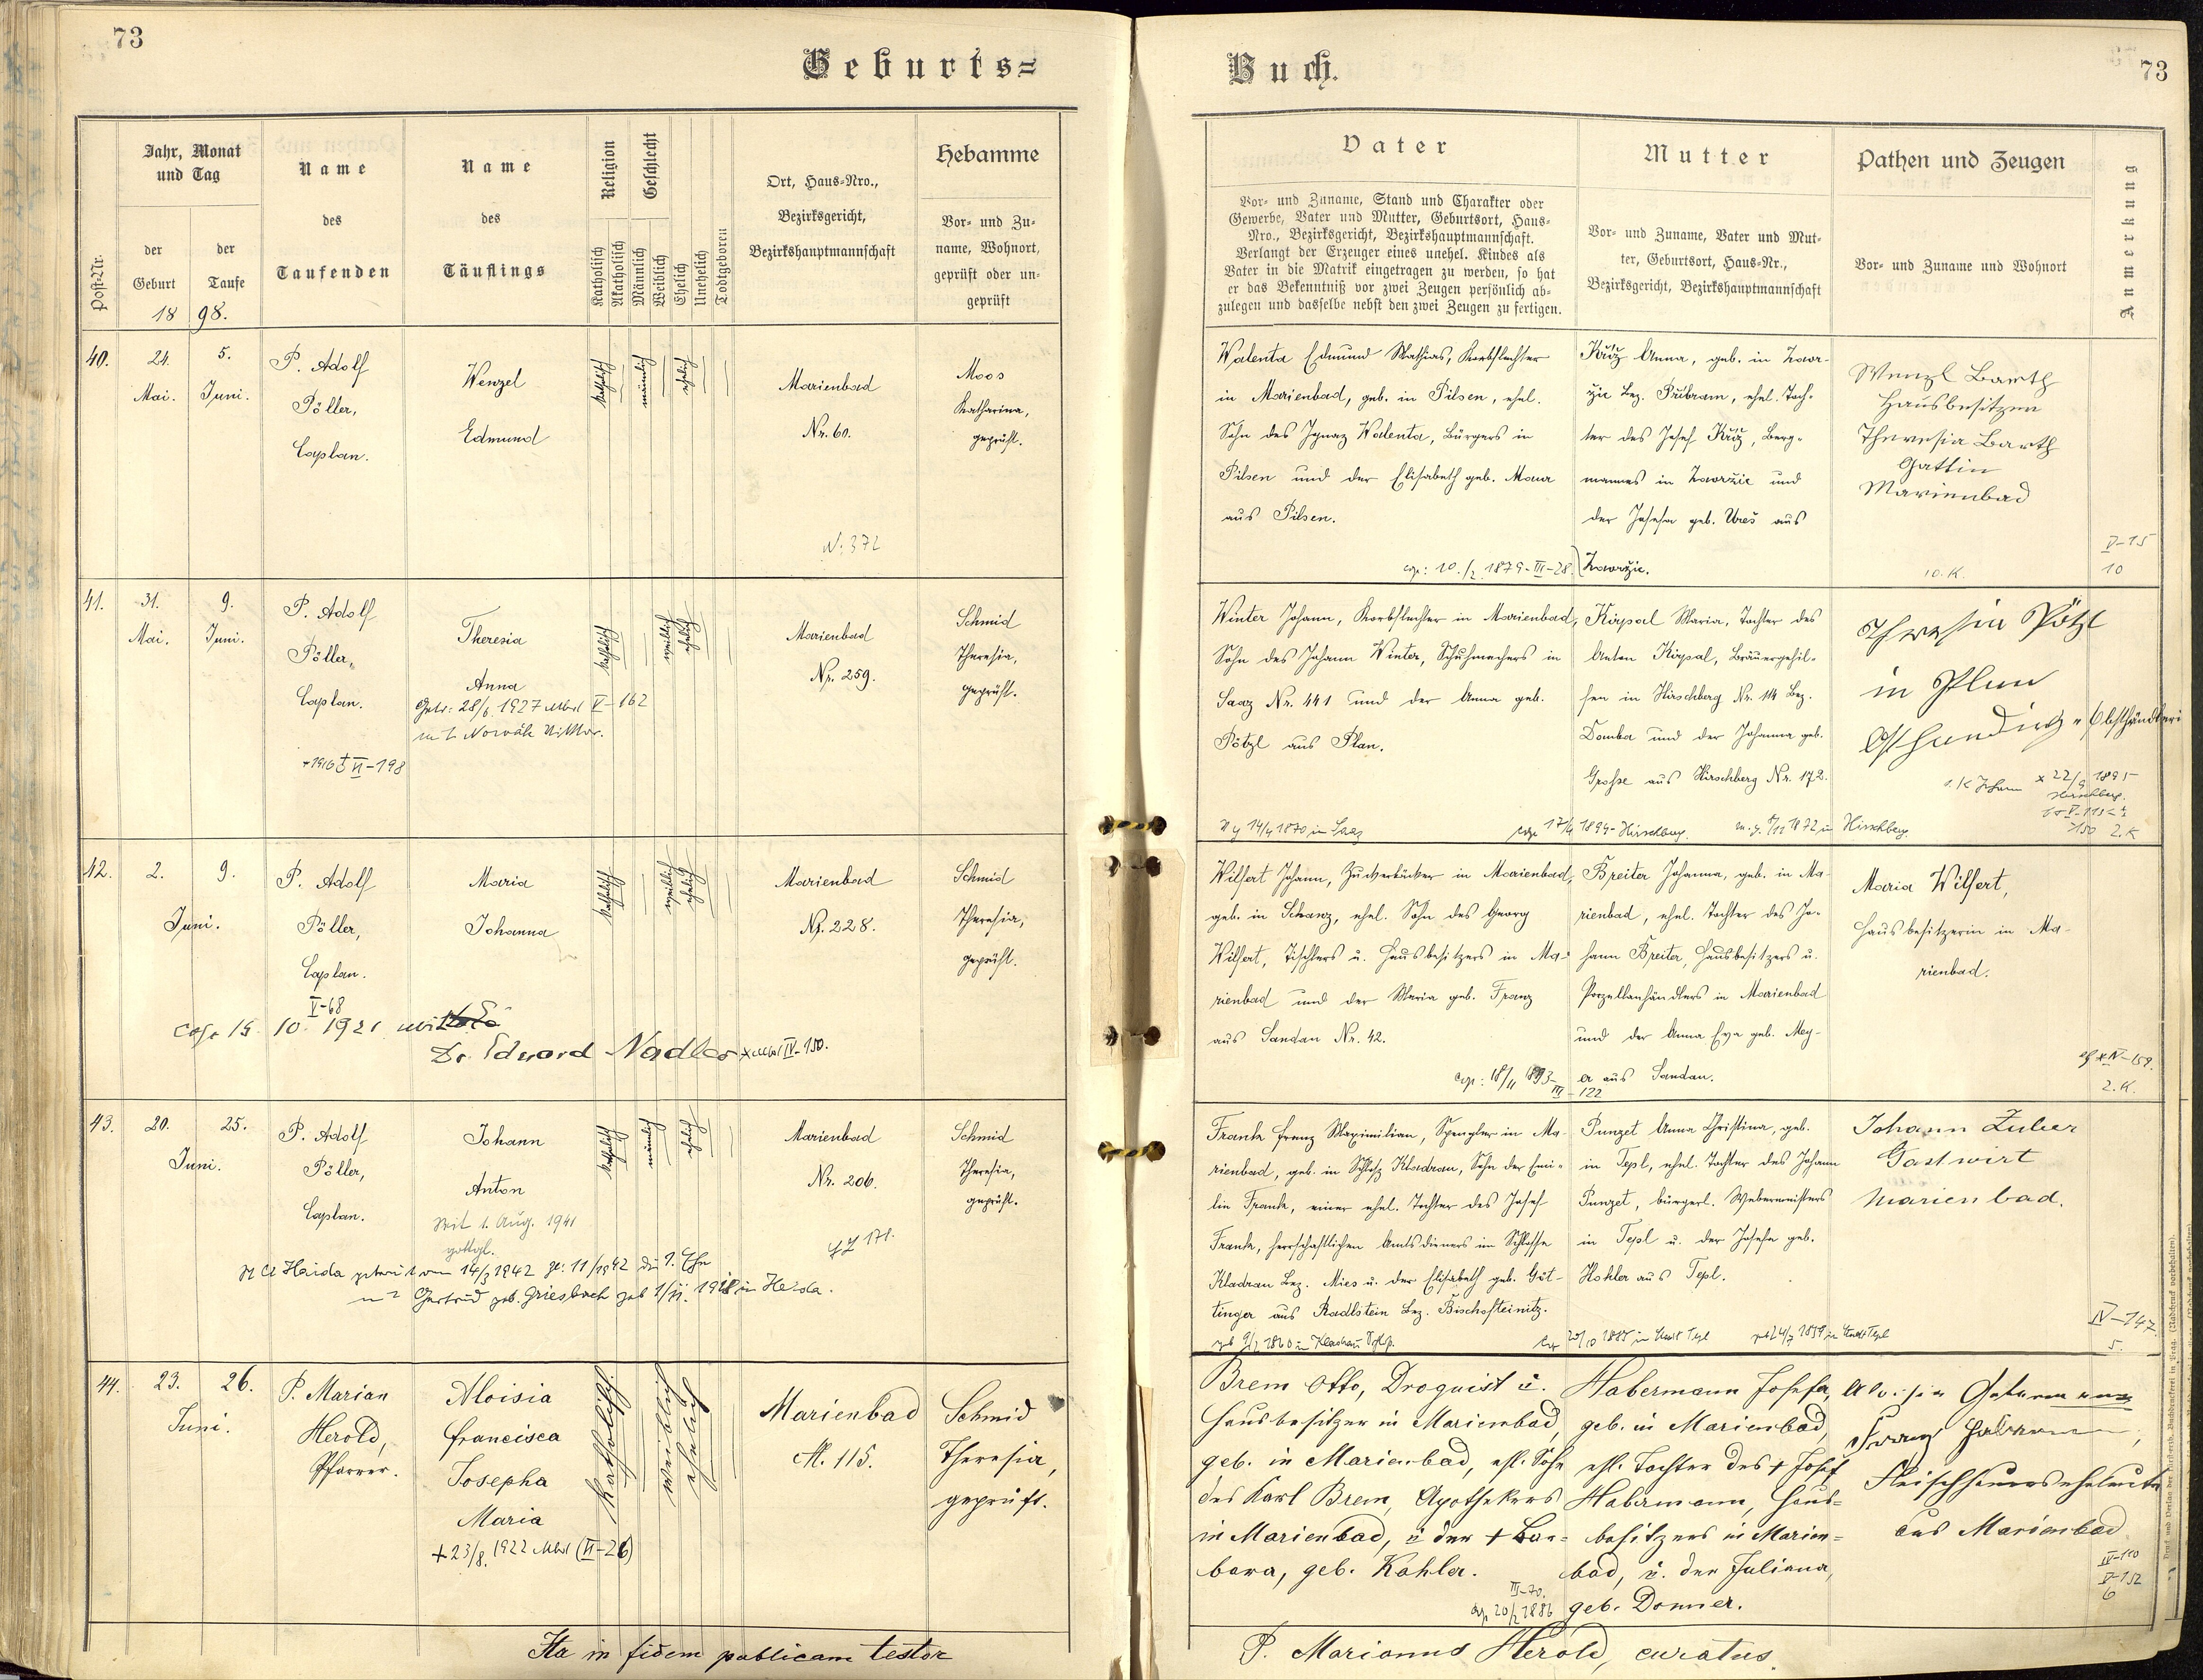 73
Geburts=
Jahr, Monat
und Tag
der
Geburt
der
Taufe
18 98.
Post-Nr.
Name
des
Taufenden
Name
des
Täuflings
Religion
Katholisch
Akatholisch
Geschlecht
Männlich
Weiblich
Ehelich
Unehelich
Todtgeboren
Ort, Haus-Nro.,
Bezirksgericht,
Bezirkshauptmannschaft
Hebamme
Vor- und Zu-
name, Wohnort,
geprüft oder un-
geprüft
40.
24.
Mai.
5.
Juni.
P. Adolf
Pöller,
Caplan.
Wenzel
Edmund
katholisch
männlich
ehelich
Marienbad
Nr. 60.
N: 372
Moos
Katharina,
geprüft.
41.
31.
Mai.
9.
Juni.
P. Adolf
Pöller,
Caplan.
Theresia
Anna
Getr: 28/6. 1927 Mbd V-162
mit Novák Viktor.
katholisch
weiblich
ehelich
Marienbad
Nr. 259.
Schmid
Theresia,
geprüft.
42.
2.
Juni.
9.
P. Adolf
Pöller,
Caplan.
V-68
Maria
Johanna
cop 15. 10. 1921 mit
Dr. Eduard Nadler
katholisch
weiblich
ehelich
Marienbad
Nr. 228.
Schmid
Theresia,
geprüft.
43.
20.
Juni.
25.
P. Adolf
Pöller,
Caplan.
Johann
Anton
Seit 1. Aug. 1941
gottgl.
mit Gertrud geb. Griesbach geb 1/11. 1918 in Haida.
katholisch
männlich
ehelich
Marienbad
Nr. 206.
Schmid
Theresia,
geprüft.
44.
23.
Juni.
26.
P. Marian
Herold,
Pfarrer.
Aloisia
Francisca
Josepha
Maria
+ 23/8. 1922 Mbd (VI-26)
katholisch.
weiblich
ehelich
Marienbad
N. 115.
Schmid
Theresia,
geprüft.
Ita in fidem publicam testor
Buch.
73
Vater
Vor- und Zuname, Stand und Charakter oder
Gewerbe, Vater und Mutter, Geburtsort, Haus-
Nro., Bezirksgericht, Bezirkshauptmannschaft.
Verlangt der Erzeuger eines unehel. Kindes als
Vater in die Matrik eingetragen zu werden, so hat
er das Bekenntniß vor zwei Zeugen persönlich ab-
zulegen und dasselbe nebst den zwei Zeugen zu fertigen.
Mutter
Vor- und Zuname, Vater und Mut-
ter, Geburtsort, Haus-Nr.,
Bezirksgericht, Bezirkshauptmannschaft
Pathen und Zeugen
Vor- und Zuname und Wohnort
Anmerkung
Walenta Edmund Mathias, Korbflechter
in Marienbad, geb. in Pilsen, ehel.
Sohn des Ignaz Walenta, Bürgers in
Pilsen und der Elisabeth geb. Maur
aus Pilsen.
cop: 10./2. 1879-III-28.
Kříž Anna, geb. in Zawr-
žic Bez. Přibram, ehel. Toch-
ter des Josef Kříž, Berg-
mannes in Zawržic und
der Josefa geb. Ureš aus
Zawržic.
Wenzl Barth
Hausbesitzer
Theresia Barth
Gattin
Marienbad
10. K.
V-15
10
Winter Johann, Korbflechter in Marienbad,
Sohn des Johann Winter, Schuhmachers in
Saaz Nr. 441 und der Anna geb.
Pötzl aus Plan.
14/4 1870 in Saaz
cop 17/9 1894 - Hirschberg.
Kirpal Maria, Tochter des
Anton Kirpal, Bräuergehil-
fen in Hirschberg Nr. 114 Bez.
Dauba und der Johanna geb.
Grosse aus Hirschberg Nr. 172.
1872 in Hirschberg.
Theresia Pötzl
in Plan
Obsthändlerin
1. K Johann x 22/9 1895
Hirschberg.
2. K
Wilfert Johann, Zuckerbäcker in Marienbad,
geb. in Schanz, ehel. Sohn des Georg
Wilfert, Tischlers u. Hausbesitzers in Ma-
rienbad und der Maria geb. Franz
aus Sandau Nr. 42.
cop: 18/11 1893-III-122
Breiter Johanna, geb. in Ma-
rienbad, ehel. Tochter des Jo-
hann Breiter, Hausbesitzers u.
Porzellanhändlers in Marienbad
und der Anna Eva geb. Mey-
er aus Sandau.
Maria Wilfert,
Hausbesitzerin in Ma-
rienbad.
2. K.
Frank Franz Maximilian, Spengler in Ma-
rienbad, geb. in Schloß Kladrau, Sohn der Emi-
lie Frank, einer ehel. Tochter des Josef
Frank, herrschaftlichen Amtsdieners im Schlosse
Kladrau Bez. Mies u. der Elisabeth geb. Göt-
tinger aus Radlstein Bez. Bischofteinitz.
Punzet Anna Christina, geb.
in Tepl, ehel. Tochter des Johann
Punzet, bürgerl. Webermeisters
in Tepl u. der Josefa geb.
Kohler aus Tepl.
Johann Zuber
Gastwirt
Marienbad.
IV-147
5.
Brem Otto, Droguist u.
Hausbesitzer in Marienbad,
geb. in Marienbad, ehl. Sohn
des Karl Brem, Apothekers
in Marienbad, u der + Bar-
bara, geb. Kohler.
III-70.
cop 20/2 1886
Habermann Josefa,
geb. in Marienbad,
ehl. Tochter des + Josef
Habermann, Haus-
besitzers in Marien-
bad, u. der Juliana,
geb. Donner.
Aloisia Habermann
Franz Habermann,
Fleischhauerseheleute
aus Marienbad
IV-110
V-152
6
P. Marianus Herold, curatus.